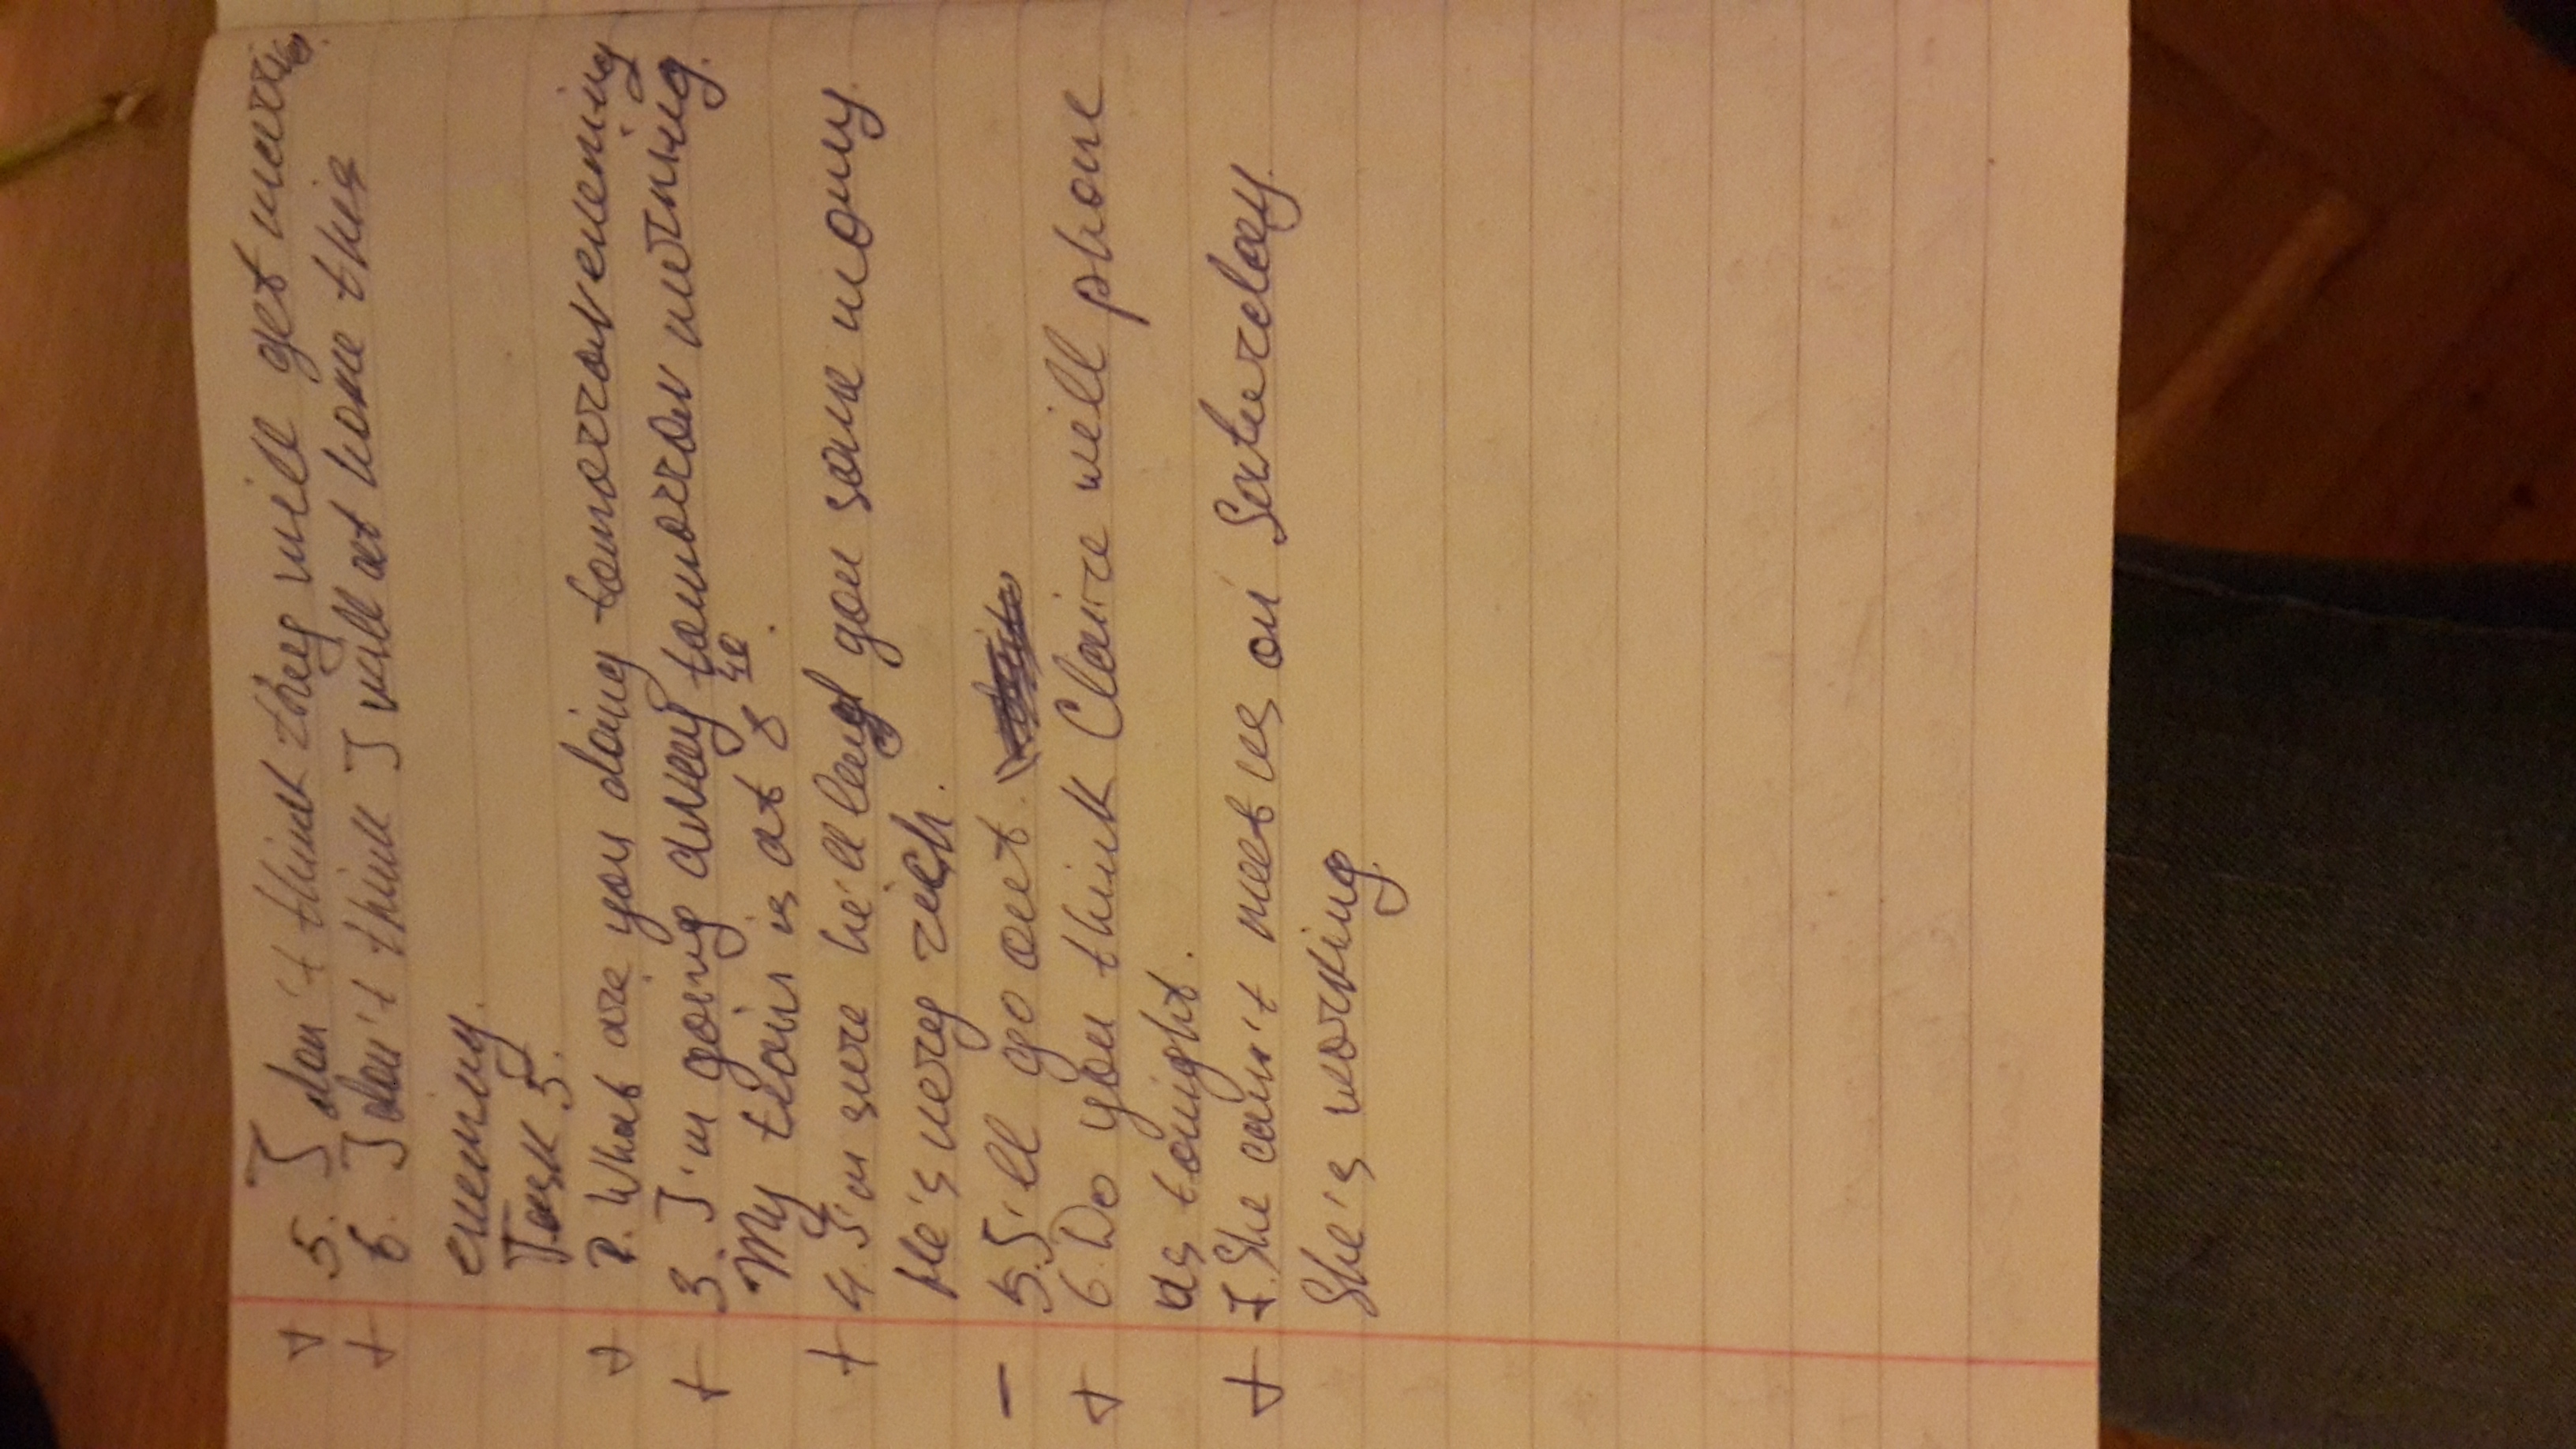 + 5. I don't think they will get merrid.
+ 6. I don't think I will at home this
evening.
Task 5.
+ 2. What are you doing tomorrow evening
+ 3. I'm going away tomorrow morning.
My train is at 8 40.
+ 4. I'm sure he'll lend you some mony.
He's very rich.
- 5. I'll go out.
+ 6. Do you think Claire will phone
us tonight.
+ 7. She cann't meet us on Saturday.
She's working.